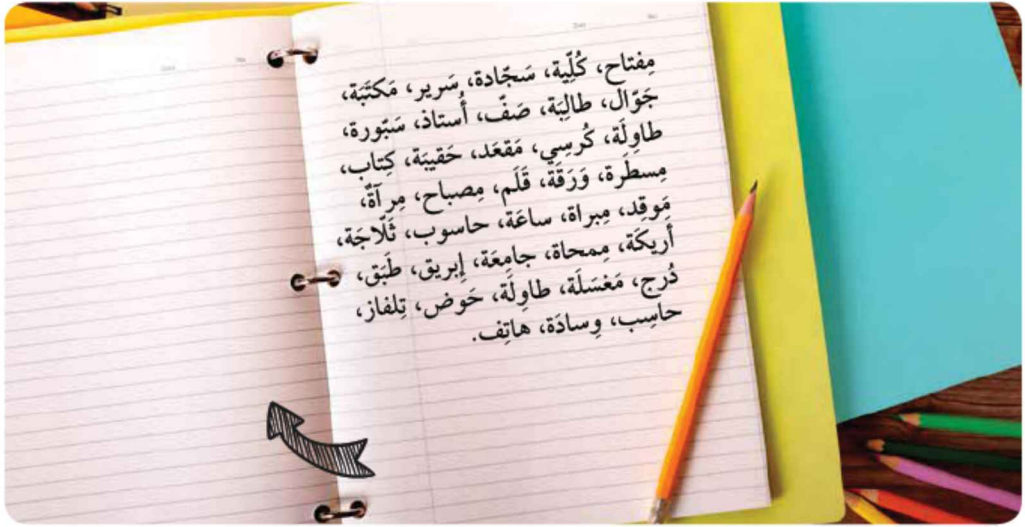 مِفتاح، كُلِّية، سَجّادة، سَرير، مَكتَبَة،
جَوّال، طالِبَة، صَفّ، أُستاذ، سَبّورة،
طاوِلَة، كُرسِي، مَقعَد، حَقيبَة، كِتاب،
مِسطَرة، وَرَقَة، قَلَم، مِصباح، مِرآةٌ،
مَوقِد، مِبراة، ساعَة، حاسوب، ثَلّاجَة،
أريكَة، مِمحاة، جامِعَة، إبريق، طَبَق،
دُرج، مَغسَلَة، طاوِلَة، حَوض، تِلفاز،
حاسِب، وِسادَة، هاتِف.